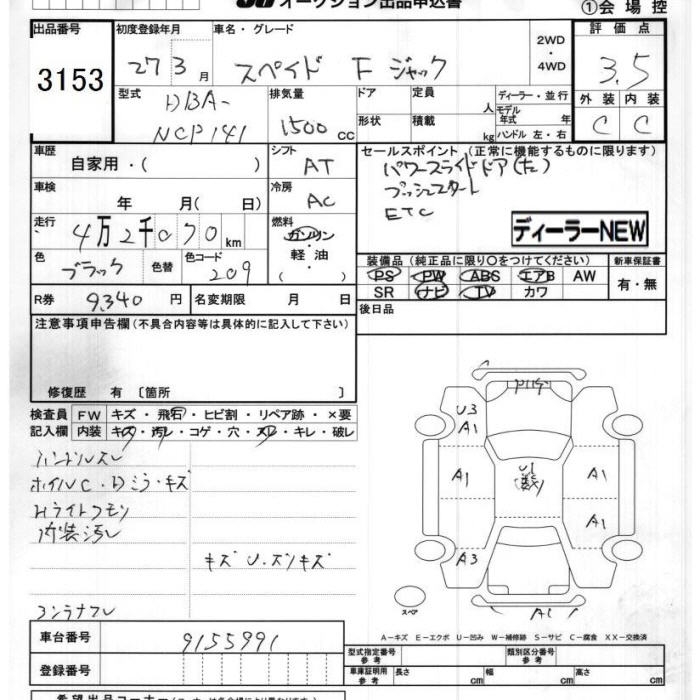 オークション出品申込書
①会場控
出品番号 初度登録年月 車名・グレード 2WD・4WD 評価点
3153 27 3月 スペイド F ジャック 3.5
型式 排気量 ドア 定員 人 ディーラー・並行 外装 内装
DBA-
NCP141 1500 CC 形状 積載 kg モデル年式 年 ハンドル 左・右 C C
車歴 自家用・( ) シフト AT セールスポイント (正常に機能するものに限ります)
パワースライドドア(左)
プッシュスタート
ETC
車検 年 月( 日) 冷房 AC
走行 4万2千070km 燃料 ガソリン・軽油・ ディーラーNEW
色 ブラック 色替 色コード 209
装備品 (純正品に限り○をつけてください) 新車保証書
PS PW ABS エアB AW 有・無
SR ナビ TV カワ
R券 9,340 円 名変期限 月 日
後日品
注意事項申告欄 (不具合内容等は具体的に記入して下さい)
修復歴 有 〔箇所 〕
検査員記入欄 FW キズ・飛石・ヒビ割・リペア跡・×要
内装 キズ・汚レ・コゲ・穴・スレ・キレ・破レ
ハンドルスレ
ホイルC・Dミラーキズ
Hライトクモリ
内装汚レ
キズU・スンキズ
コンラナフレ
U3
A1
A1
U1
A1
A1
A3
A1
スペア
A-キズ E-エクボ U-凹み W-補修跡 S-サビ C-腐食 XX-交換済
車台番号 9155991
型式指定番号 参考 類別区分番号 参考
登録番号
車庫証明用 参考 長さ cm 幅 cm 高さ cm